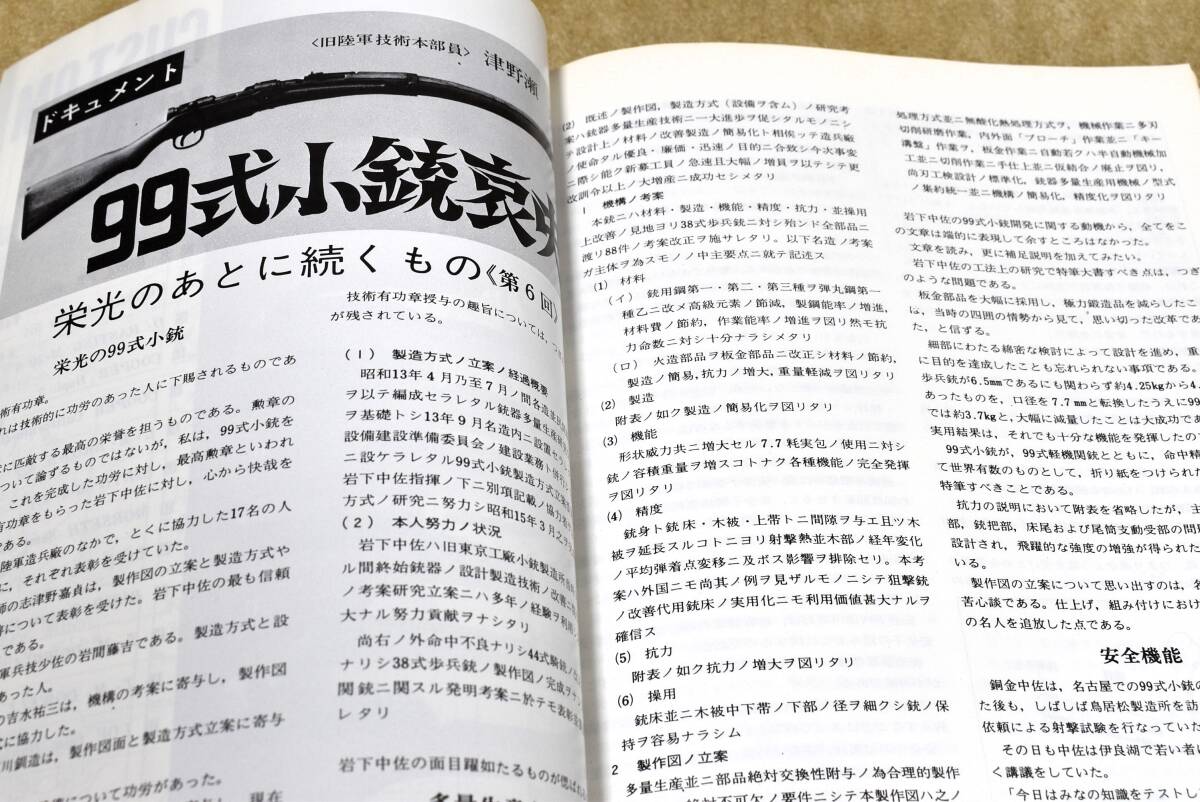 ドキュメント
〈旧陸軍技術本部員〉 津野瀬
99式小銃哀史
栄光のあとに続くもの《第6回》
栄光の99式小銃
術有功章。
れは技術的に功労のあった人に下賜されるものであ
に匹敵する最高の栄誉を担うものである。勲章の
ついて論ずるものではないが，私は，99式小銃を
これを完成した功労に対し，最高勲章といわれ
有功章をもらった岩下中佐に対し，心から快哉を
である。
陸軍造兵廠のなかで，とくに協力した17名の人
に，それぞれ表彰を受けていた。
師の志津野嘉貞は，製作図の立案と製造方式や
等について表彰を受けた。岩下中佐の最も信頼
である。
軍兵技少佐の岩間藤吉である。製造方式と設
あった人。
の吉水祐三は，機構の考案に寄与し，製作図
式に協力した。
川鋼造は，製作図面と製造方式立案に寄与
について功労があった。
技術有功章授与の趣旨については，つぎ
が残されている。
（1） 製造方式ノ立案ノ経過概要
昭和13年4月乃至7月ノ間各造並
ヲ以テ編成セラレタル銃器多量生産研
ヲ基礎トシ13年9月名造内ニ設置セラレ
設備建設準備委員会ノ建設業務ト併行シ
ニ設ケラレタル99式小銃製造方式立案
岩下中佐指揮ノ下ニ別項記載ノ協力者
方式ノ研究ニ努力シ昭和15年3月之ヲ
（2） 本人努力ノ状況
岩下中佐ハ旧東京工廠小銃製造所
ル間終始銃器ノ設計製造技術ノ改善
ノ考案研究立案ニハ多年ノ経験ヲ利用シ
大ナル努力貢献ヲナシタリ
尚右ノ外命中不良ナリシ44式騎銃
ナリシ38式歩兵銃ノ製作図ノ完成ヲナ
関銃ニ関スル発明考案ニ於テモ表彰
レタリ
岩下中佐の面目躍如たるものが偲ばれ
多量生産
(2) 既述ノ製作図，製造方式（設備ヲ含ム）ノ研究考
案ハ銃器多量生産技術ニ一大進歩ヲ促シタルモノニシ
テ設計上ノ材料ノ改善製造ノ簡易化ト相俟ッテ造兵廠
ノ使命タル優良・廉価・迅速ノ目的ニ合致シ今次事変
ニ際シ能ク新募工員ノ急速且大幅ノ増員ヲ以テシテ更
改訓令以上ノ大増産ニ成功セシメタリ
1 機構ノ考案
本銃ニハ材料・製造・機能・精度・抗力・並操用
上改善ノ見地ヨリ38式歩兵銃ニ対シ殆ンド全部品ニ
渡リ88件ノ考案改正ヲ施サレタリ。以下名造ノ考案
ガ主体ヲ為スモノノ中主要点ニ就テ記述ス
(1) 材料
（イ） 銃用鋼第一・第二・第三種ヲ弾丸鋼第一
種乙ニ改メ高級元素ノ節減，製鋼能率ノ増進，
材料費ノ節約，作業能率ノ増進ヲ図リ然モ抗
力命数ニ対シ十分ナラシメタリ
（ロ） 火造部品ヲ板金部品ニ改正シ材料ノ節約，
製造ノ簡易，抗力ノ増大，重量軽減ヲ図レリ
(2) 製造
附表ノ如ク製造ノ簡易化ヲ図リタリ
(3) 機能
形状威力共ニ増大セル7.7粍実包ノ使用ニ対シ
銃ノ容積重量ヲ増スコトナク各種機能ノ完全発揮
ヲ図リタリ
(4) 精度
銃身ト銃床・木被・上帯トニ間隙ヲ与エ且ツ木
被ヲ延長スルコトニヨリ射撃熱並木部ノ経年変化
ノ平均弾着点変移ニ及ボス影響ヲ排除セリ。本考
案ハ外国ニモ尚其ノ例ヲ見ザルモノニシテ狙撃銃
ノ改善代用銃床ノ実用化ニモ利用価値甚大ナルヲ
確信ス
(5) 抗力
附表ノ如ク抗力ノ増大ヲ図リタリ
(6) 操用
銃床並ニ木被中下帯ノ下部ノ径ヲ細クシ銃ノ保
持ヲ容易ナラシム
2 製作図ノ立案
多量生産並ニ部品絶対交換性附与ノ為合理的製作
絶対不可欠ノ要件ニシテ本製作図ハ之ノ
処理方式並ニ無酸化熱処理方式ヲ，機械作業ニ多刃
切削研磨作業，内外面「ブローチ」作業並ニ「キー
溝盤」作業ヲ，板金作業ニ自動若クハ半自動機械加
工並ニ切削作業ニ手仕上並ニ仮結合ノ廃止ヲ図リ，
尚刃工検設計ノ標準化，銃器多量生産用機械ノ型式
ノ集約統一並ニ機構ノ簡易化，精度化ヲ図リタリ
岩下中佐の99式小銃開発に関する動機から，全てをこ
の文章は端的に表現して余すところはなかった。
文章を読み，更に補足説明を加えてみたい。
岩下中佐の工法上の研究で特筆大書すべき点は，つぎ
のような問題である。
板金部品を大幅に採用し，極力鍛造品を減らしたこ
は，当時の四囲の情勢から見て，思い切った改革であ
た，と信ずる。
細部にわたる綿密な検討によって設計を進め，重
に目的を達成したことも忘れられない事項である。
歩兵銃が6.5mmであるにも関わらず約4.25kgから4.
あったものを，口径を7.7mmと転換したうえに99
では約3.7kgと，大幅に減量したことは大成功であ
実用結果は，それでも十分な機能を発揮したので
99式小銃が，99式軽機関銃とともに，命中精
て世界有数のものとして，折り紙をつけられた
特筆すべきことである。
抗力の説明において附表を省略したが，主
部，銃把部，床尾および尾筒支動受部の問
設計され，飛躍的な強度の増強が得られた
いる。
製作図の立案について思い出すのは，名
苦心談である。仕上げ，組み付けにおけ
の名人を追放した点である。
安全機能
銅金中佐は，名古屋での99式小銃の
た後も，しばしば鳥居松製造所を訪
依頼による射撃試験を行なっていた
その日も中佐は伊良湖で若い者に
く講義をしていた。
「今日はみなの知識をテストし